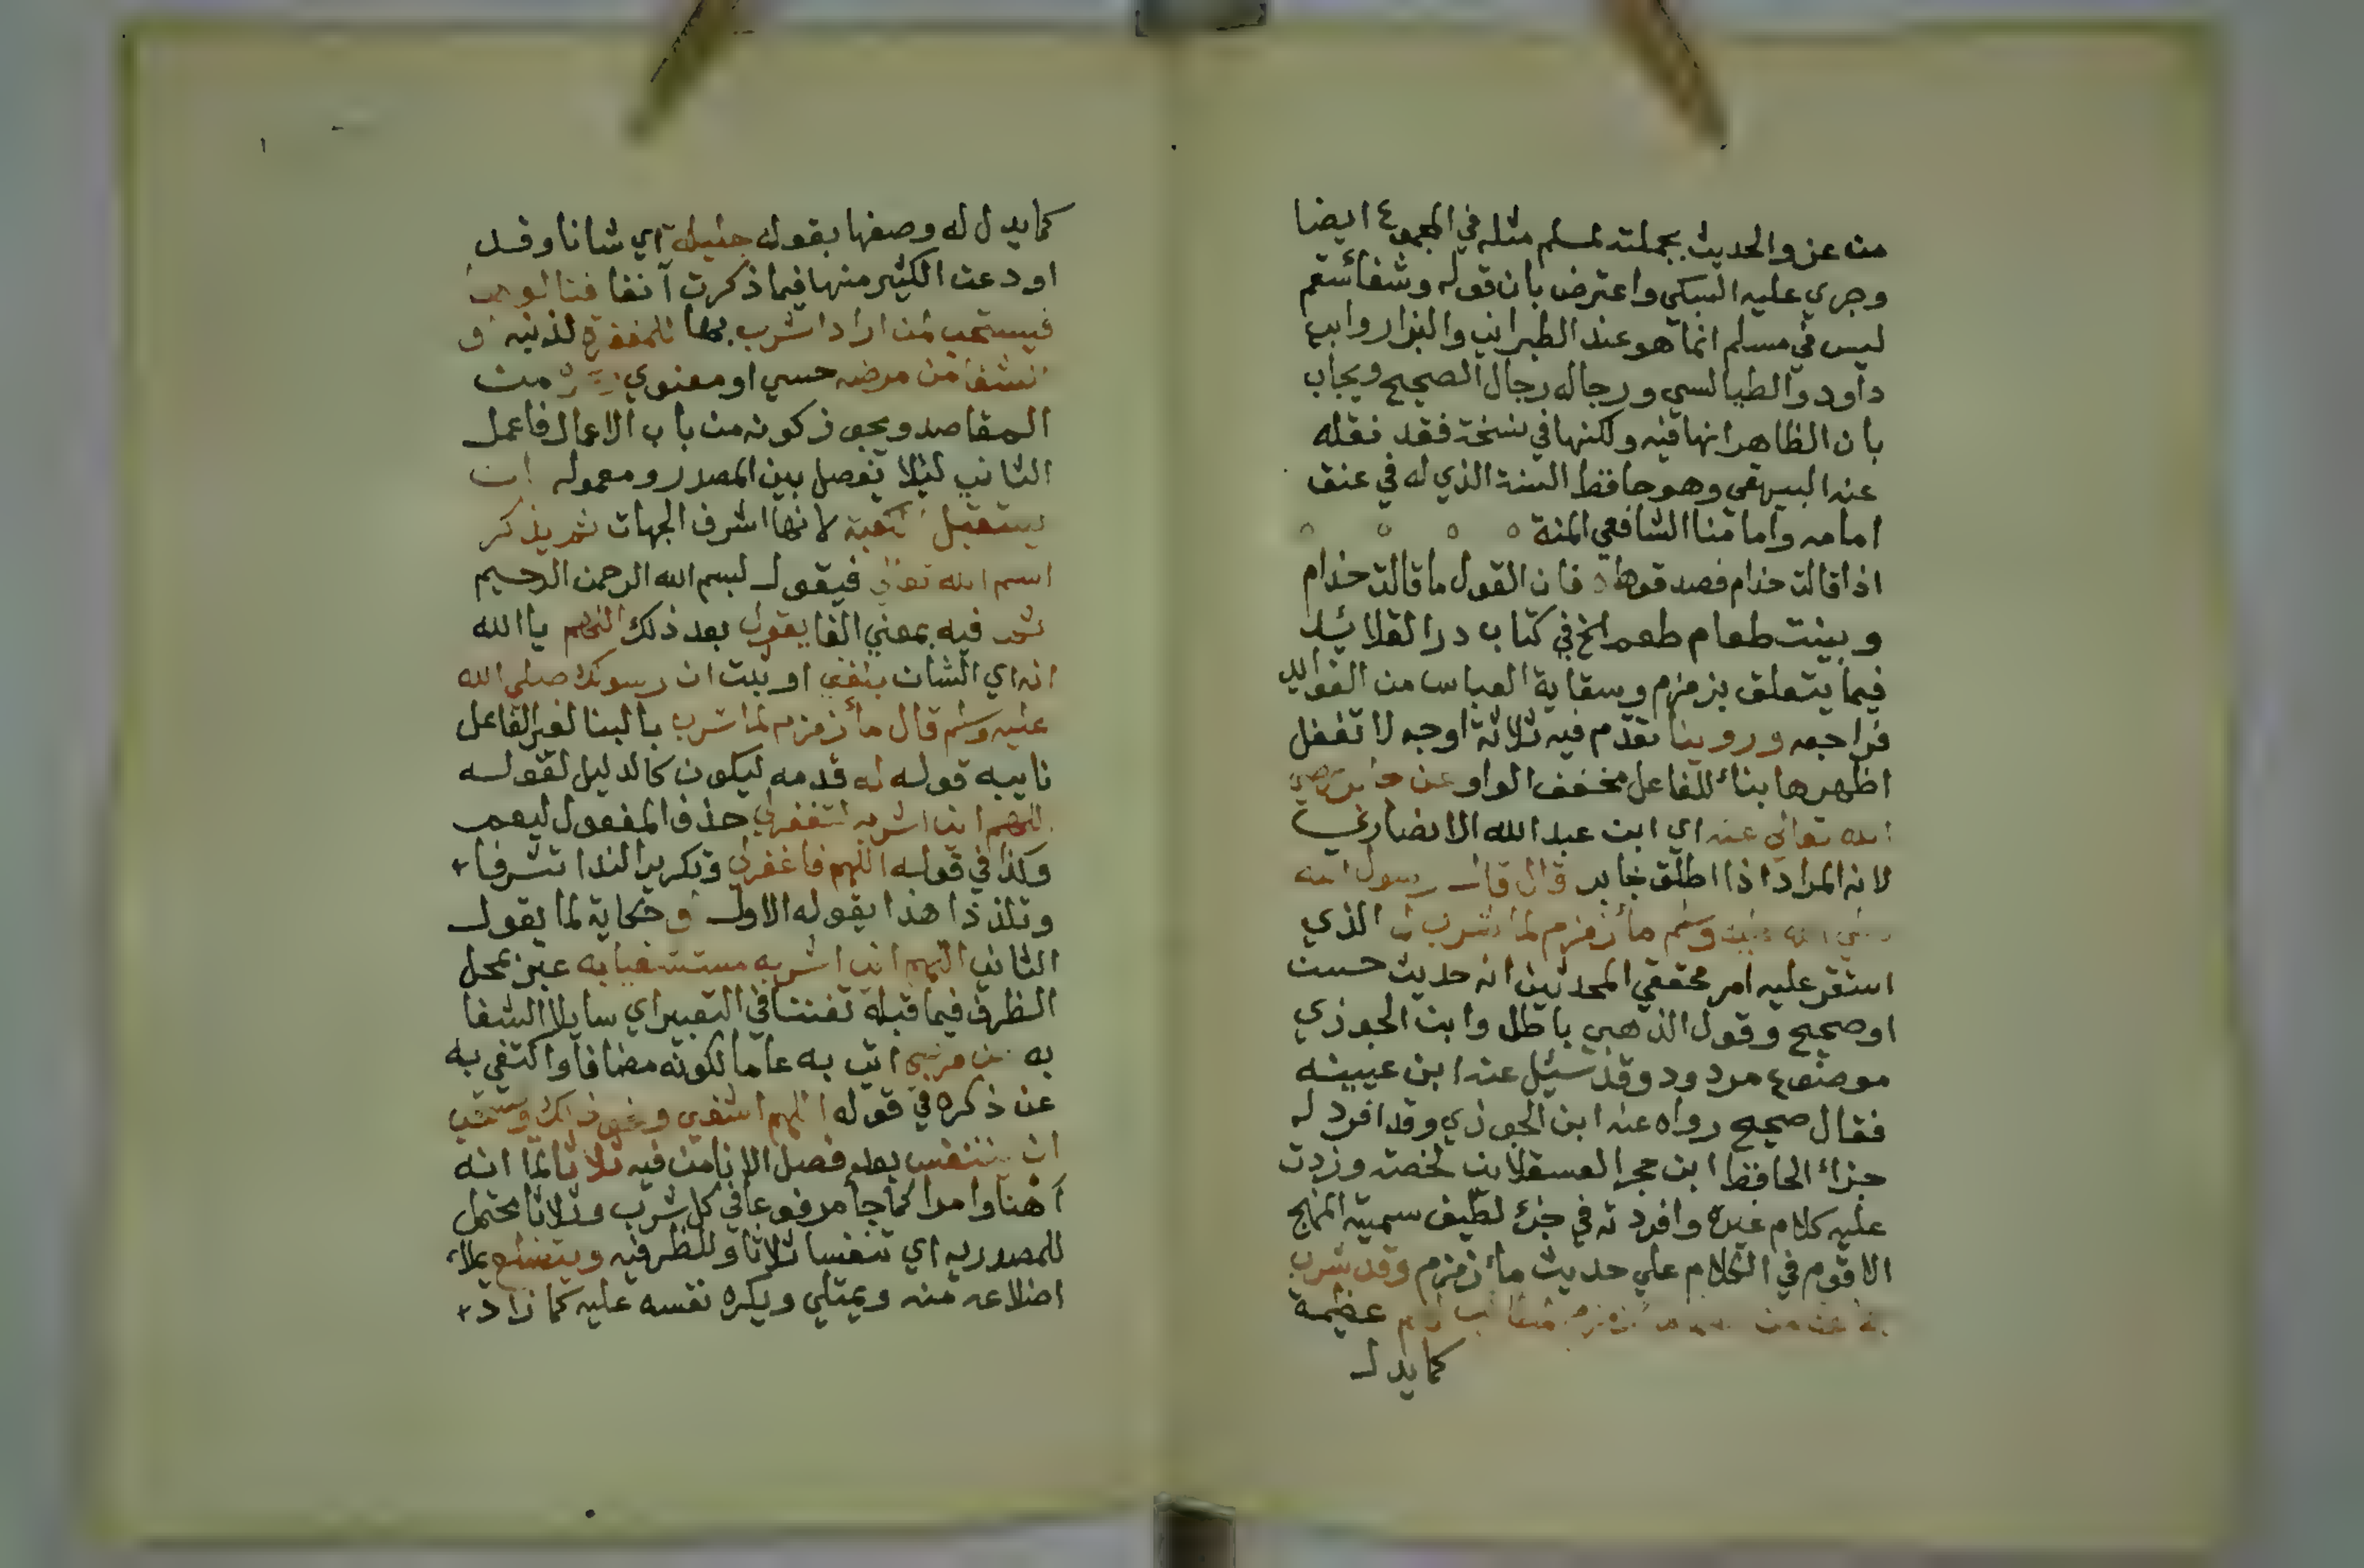 من عزو الحديث بجملته لمسلم مثله في المجموع ايضا
وجري عليه السبكي واعترض بان قوله وشفا سقم
ليس في مسلم انما هو عند الطبراني والبزار وابي
داود والطيالسي ورجاله رجال الصحيح ويجاب
بان الظاهر انها فيه ولكنها في نسخة فقد نقله
عنه البيهقي وهو حافظ السنة الذي له في عنق
امامه وامامنا الشافعي المنة
اذا قالت حذام فصدقوها فان القول ما قالت حذام
وبينت طعام طعم الخ في كتاب درر القلائد
فيما يتعلق بزمزم وسقاية العباس من الفوايد
فراجعه وروينا تقدم فيه ثلاثة اوجه لا تغفل
اظهرها بناء للفاعل مخفف الواو عن جابر رضي
الله تعالي عنه اي ابن عبد الله الانصاري
لانه المراد اذا اطلق جابر قال قال رسول الله
صلي الله عليه وسلم ماء زمزم لما شرب له الذي
استقر عليه امر محققي المحدثين انه حديث حسن
او صحيح وقول الذهبي باطل وابن الجوزي
موضوع مردود وقد سئل عنه ابن عيينه
فقال صحيح رواه عنه ابن الجوزي وقد افرد له
جزاء الحافظ ابن حجر العسقلاني لخصته وزدت
عليه كلام غيره وافردته في جزء لطيف سميته النهج
الاقوم في الكلام علي حديث ماء زمزم وقد شرب
عظيمة
كما يدل
كما يدل له وصفها بقوله جليلة اي شانا وقد
اودعت الكثير منها فيما ذكرت آنفا فنالوها
فيستحب لمن اراد الشرب للمغفرة لذنبه و
الشفا من مرضه حسي او معنوي من
المقاصد ويجوز كونه من باب الاعمال فاعمل
الثاني ليلا يفصل بين المصدر ومعموله ان
يستقبل الكعبة لانها اشرف الجهات ثم يذكر
اسم الله تعالي فيقول بسم الله الرحمن الرحيم
ثم فيه بمعني الفا يقول بعد ذلك اللهم يا الله
انه اي الشان بلغني او ثبت ان رسولك صلي الله
عليه وسلم قال ماء زمزم لما شرب بالبنا لغير الفاعل
نايبه قوله له قدمه ليكون كالدليل لقوله
اللهم اني اشربه لتغفر لي حذف المفعول ليعم
وكذا في قوله اللهم فاغفر لي وتكرير الندا تشرفا
وتلذذا هذا يقوله الاول وحكاية لما يقول
الثاني اللهم اني اشربه مستشفيا به عبر عن محل
الظرف فيما قبله تفننا في التعبير اي سايلا الشفا
به من مرضي اتي به عاما لكونه مضافا واكتفي به
عن ذكره في قوله اللهم اشفني ونحو ذلك ويستحب
ان يتنفس بعد فصل الانا من فيه ثلاثا لما انه
اهنا وامرا كما جا مرفوعا في كل شرب وثلاثا محتمل
للمصدريه اي تنفسا ثلاثا وللظرفيه ويتضلع يملاء
اضلاعه منه ويمتلي ويكره نفسه عليه كما زاد